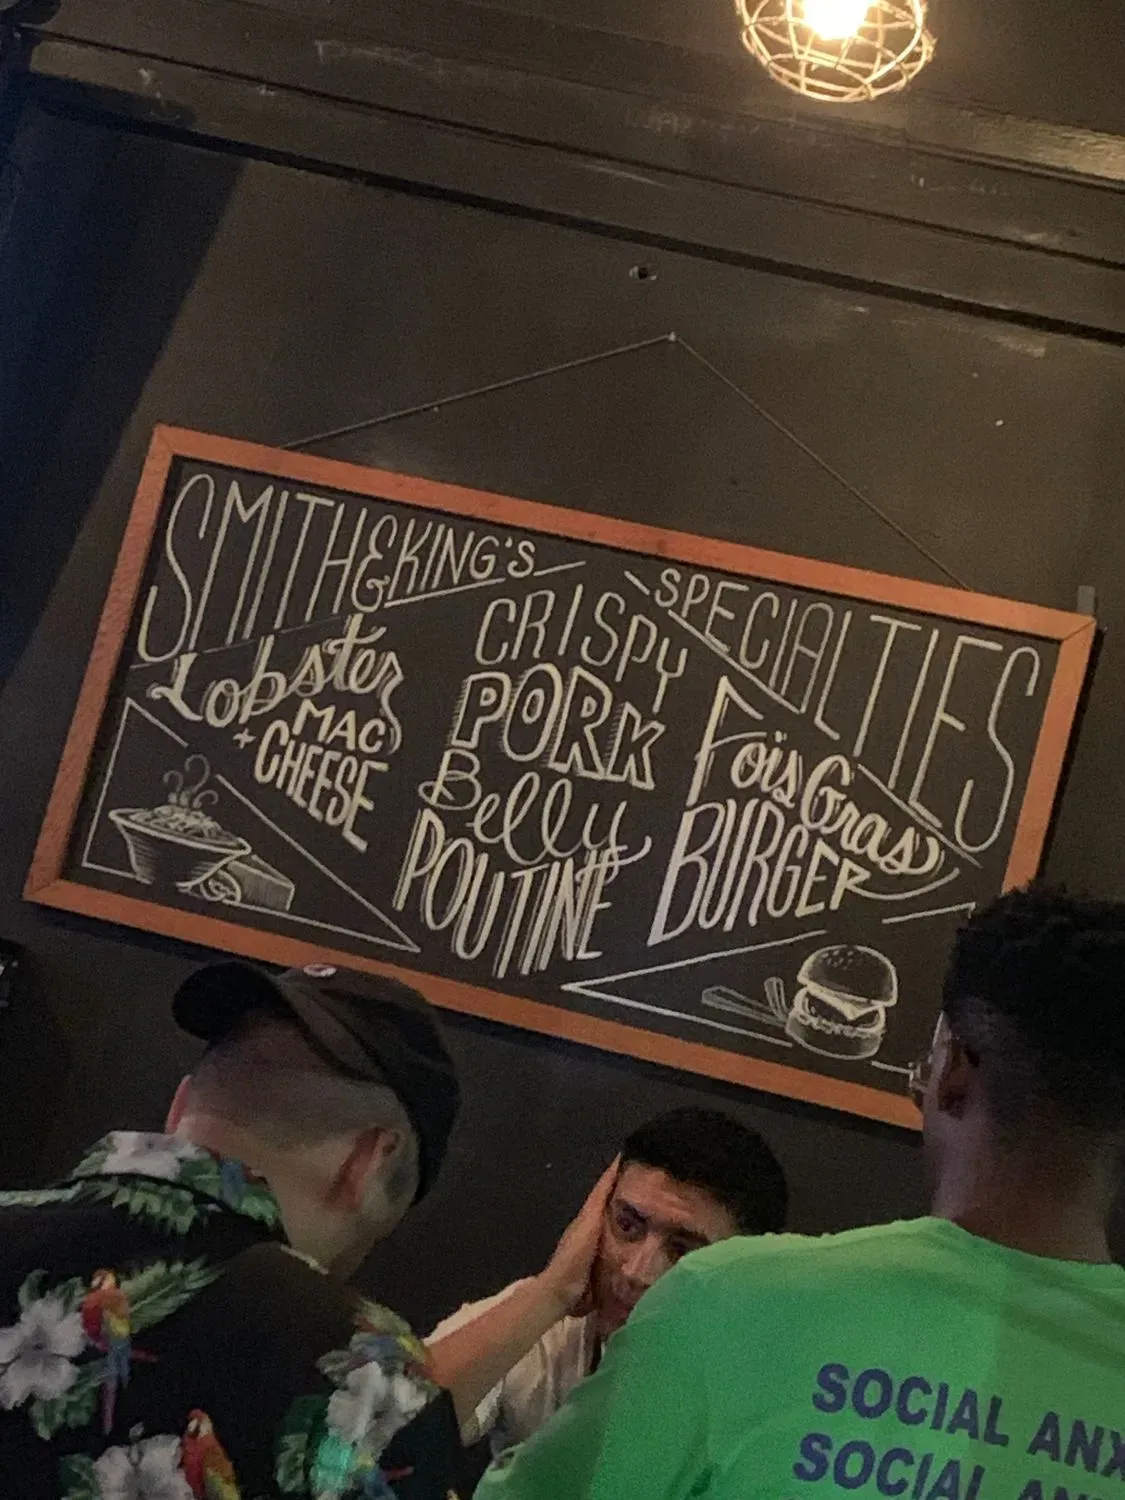 SMITH&KING'S SPECIALTIES
Lobster
MAC
+ CHEESE
CRISPY
PORK
Belly
POUTINE
Foïs Gras
BURGER
SOCIAL
SOCIAL